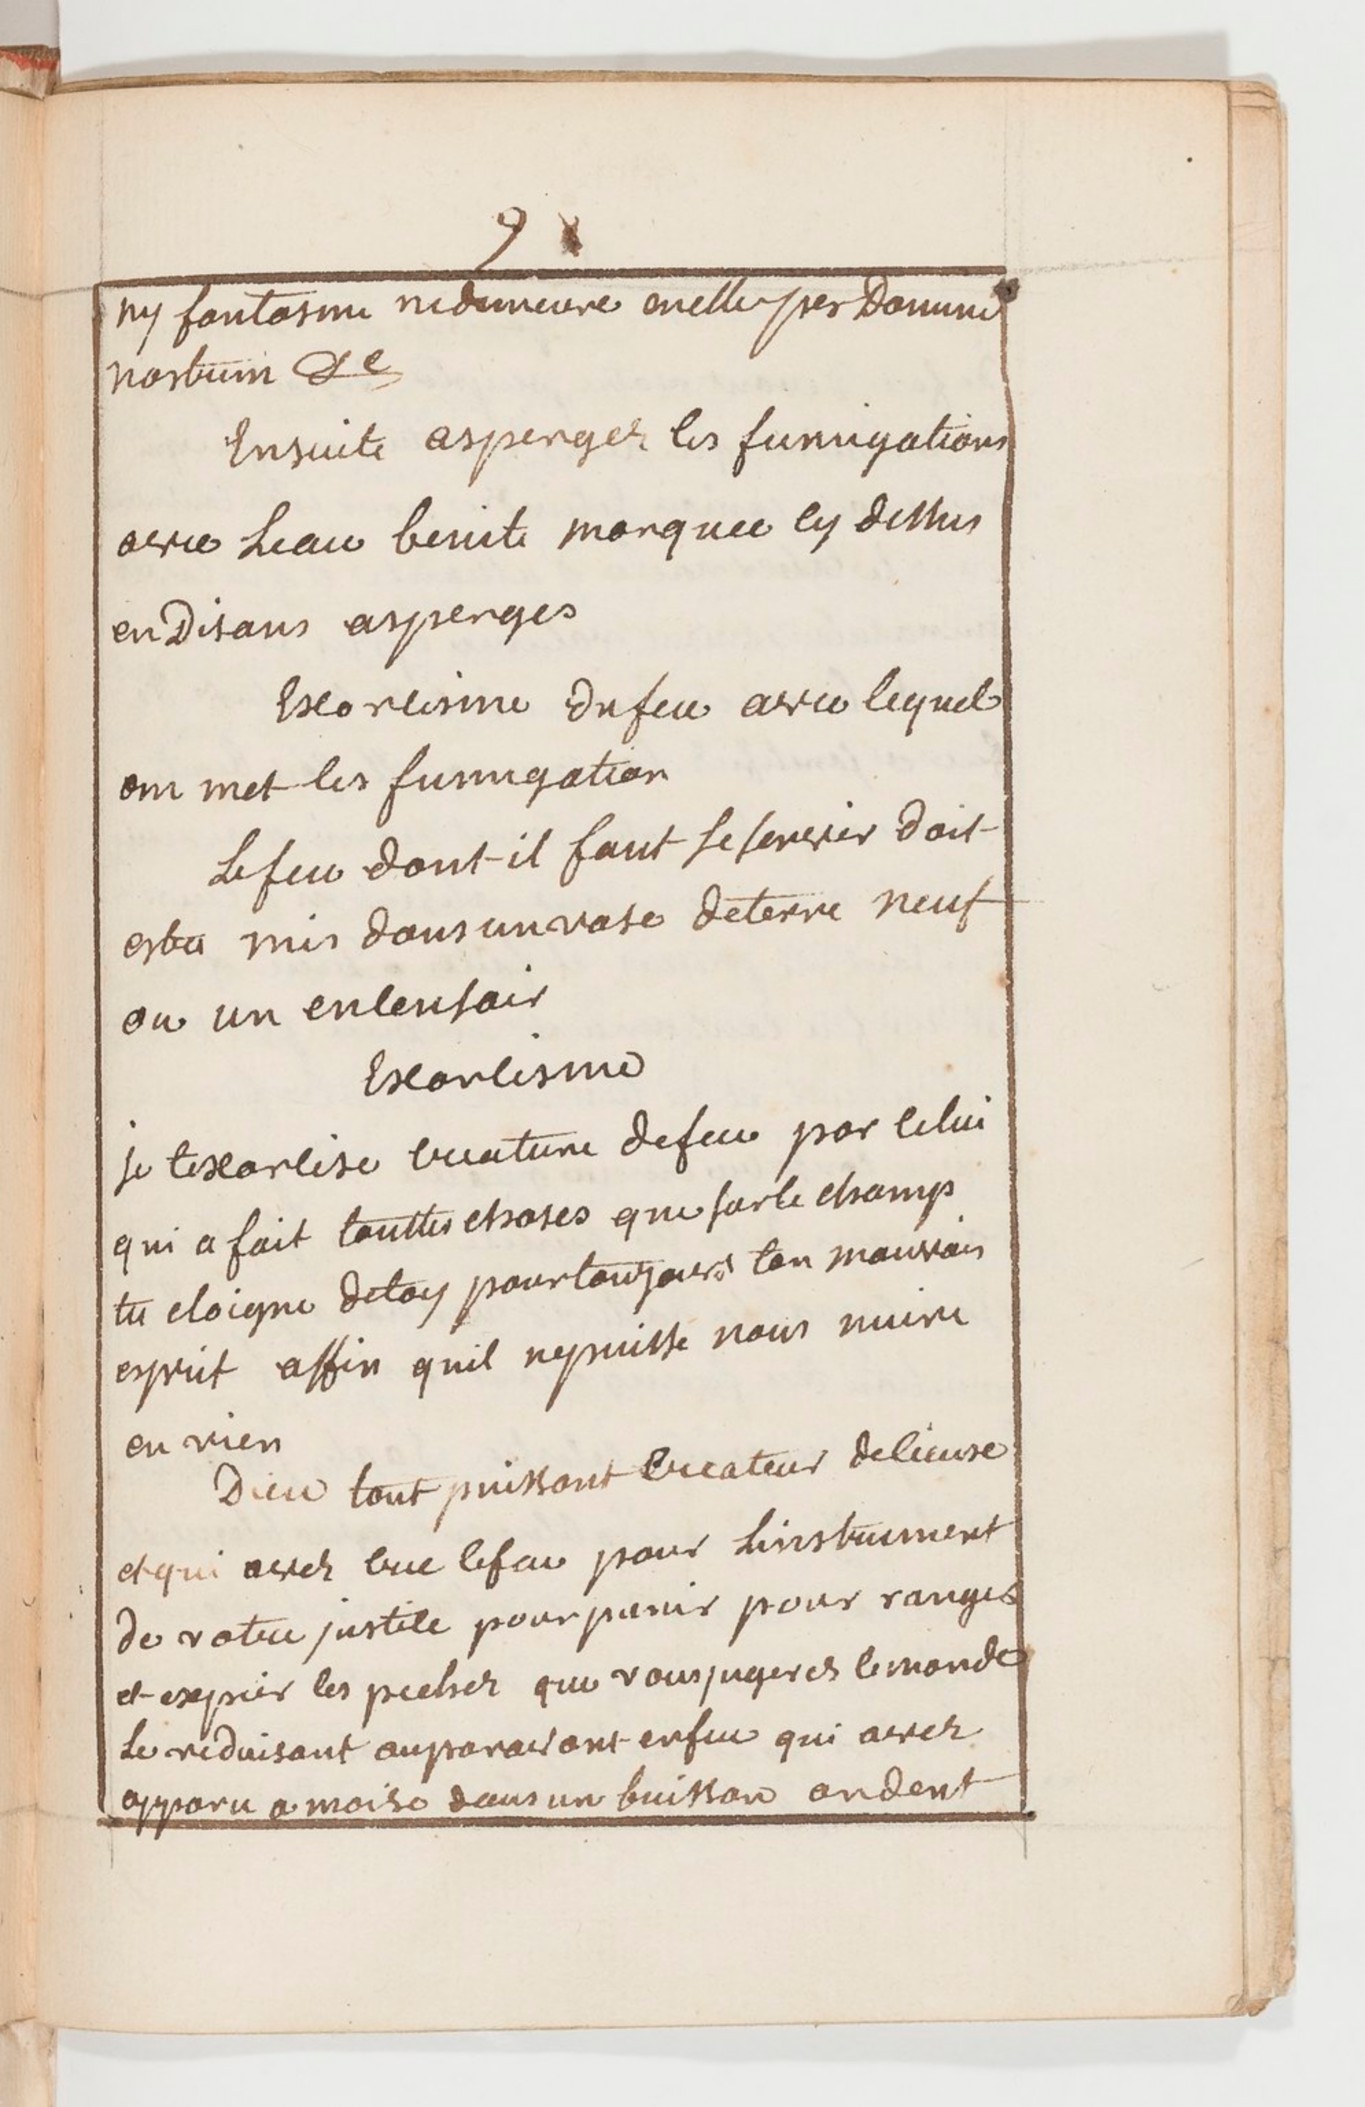 9
ny fantosme ne demeure en elle per Domine
nostrum &c
Ensuite aspergez les fumigations
avec Leau benite marquee cy dessus
en Disans asperges
Exorcisme du feu avec lequel
om met les fumigation
Le feu dont il faut se servir doit
estre mis dans un vase de terre neuf
ou un encensoir
Exorcisme
je texorcise creature de feu par celui
qui a fait touttes choses que sur le champ
tu eloigne de toy pour toujours ton mauvais
esprit affin quil ne puisse nous nuire
en rien
Dieu tout puissant Createur de lieuse
et qui avez cree le feu pour Linstrument
de votre justice pour punir pour ranges
et expier les pechez que vous jugerez le monde
Le reduisant auparavant en feu qui avez
apparu a moise dans un buisson ardent